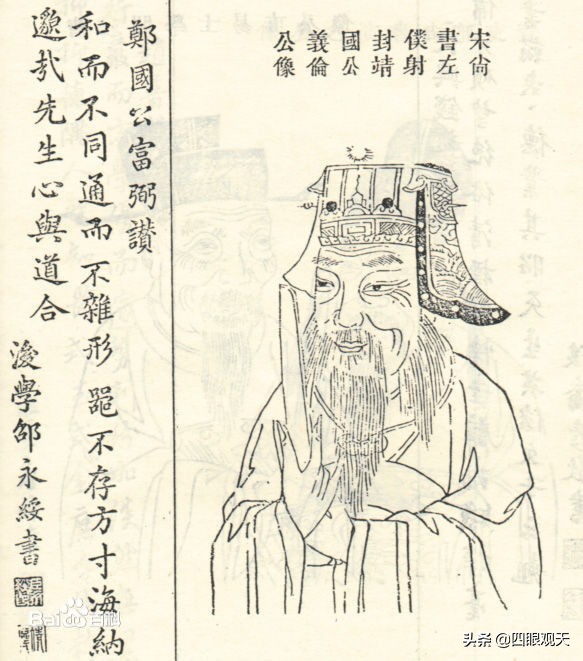 宋尚
書左
僕射
封靖
國公
義倫
公像
鄭國公富弼讃
和而不同通而不雜形噐不存方寸海納
邈㢤先生心與道合
後學邵永綏書
Bai百科
头条 @四眼观天